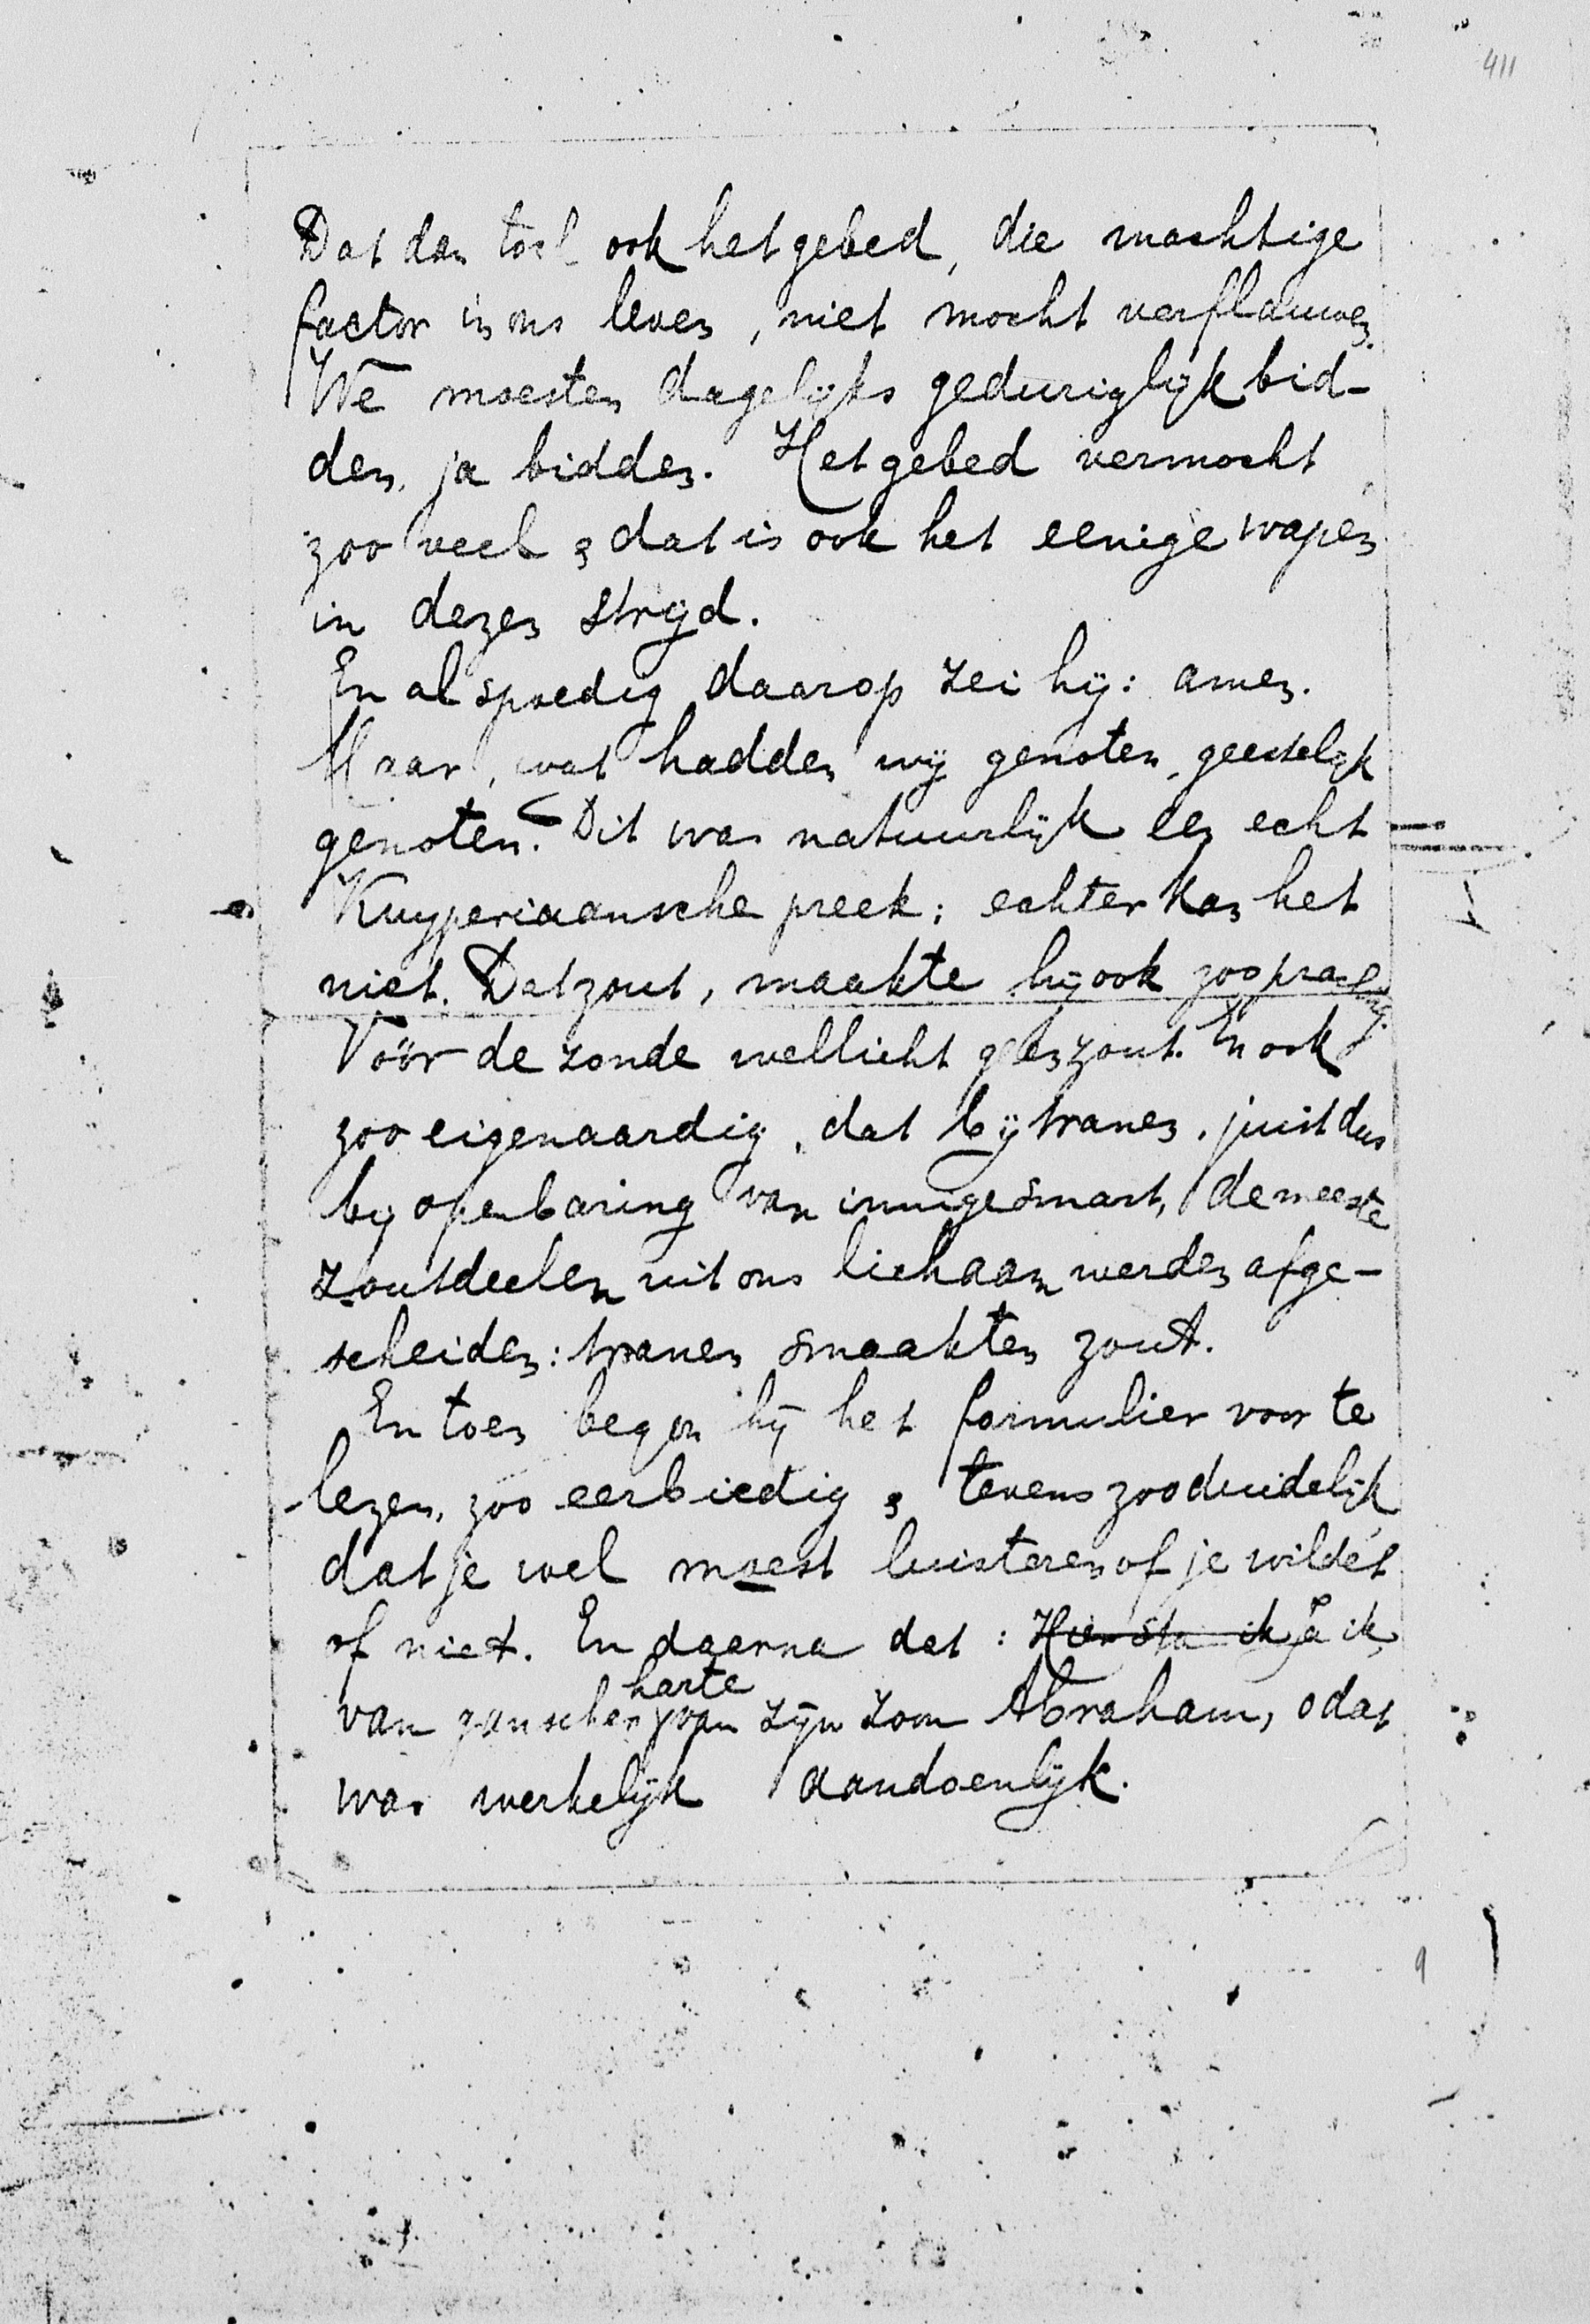 411
Dat dan toch ook het gebed, die machtige
factor in ons leven, niet mocht verflauwen.
We moesten dagelijks geduriglijk bid-
den, ja bidden. Het gebed vermocht
zoo veel & dat is ook het eenige wapen
in dezen strijd.
En al spoedig daarop zei hij: amen.
Maar, wat hadden wij genoten, geestelijk
genoten. Dit was natuurlijk een echt
Kuyperiaansche preek; echter kan het
niet. Dat zout, maakte hij ook zoo prachtig.
Vóór de zonde wellicht geen zout. En ook
zoo eigenaardig, dat bij tranen, juist dus
bij openbaring van innige smart, de meeste
zoutdeelen uit ons lichaam werden afge-
scheiden: tranen smaakten zout.
En toen begon hij het formulier voor te
lezen, zoo eerbiedig & tevens zoo duidelijk
dat je wel moest luisteren of je wildet
of niet. En daarna dat: Hier sta ik Ja ik
van ganscher harte van zijn zoon Abraham, o dat
was werkelijk aandoenlijk.
9